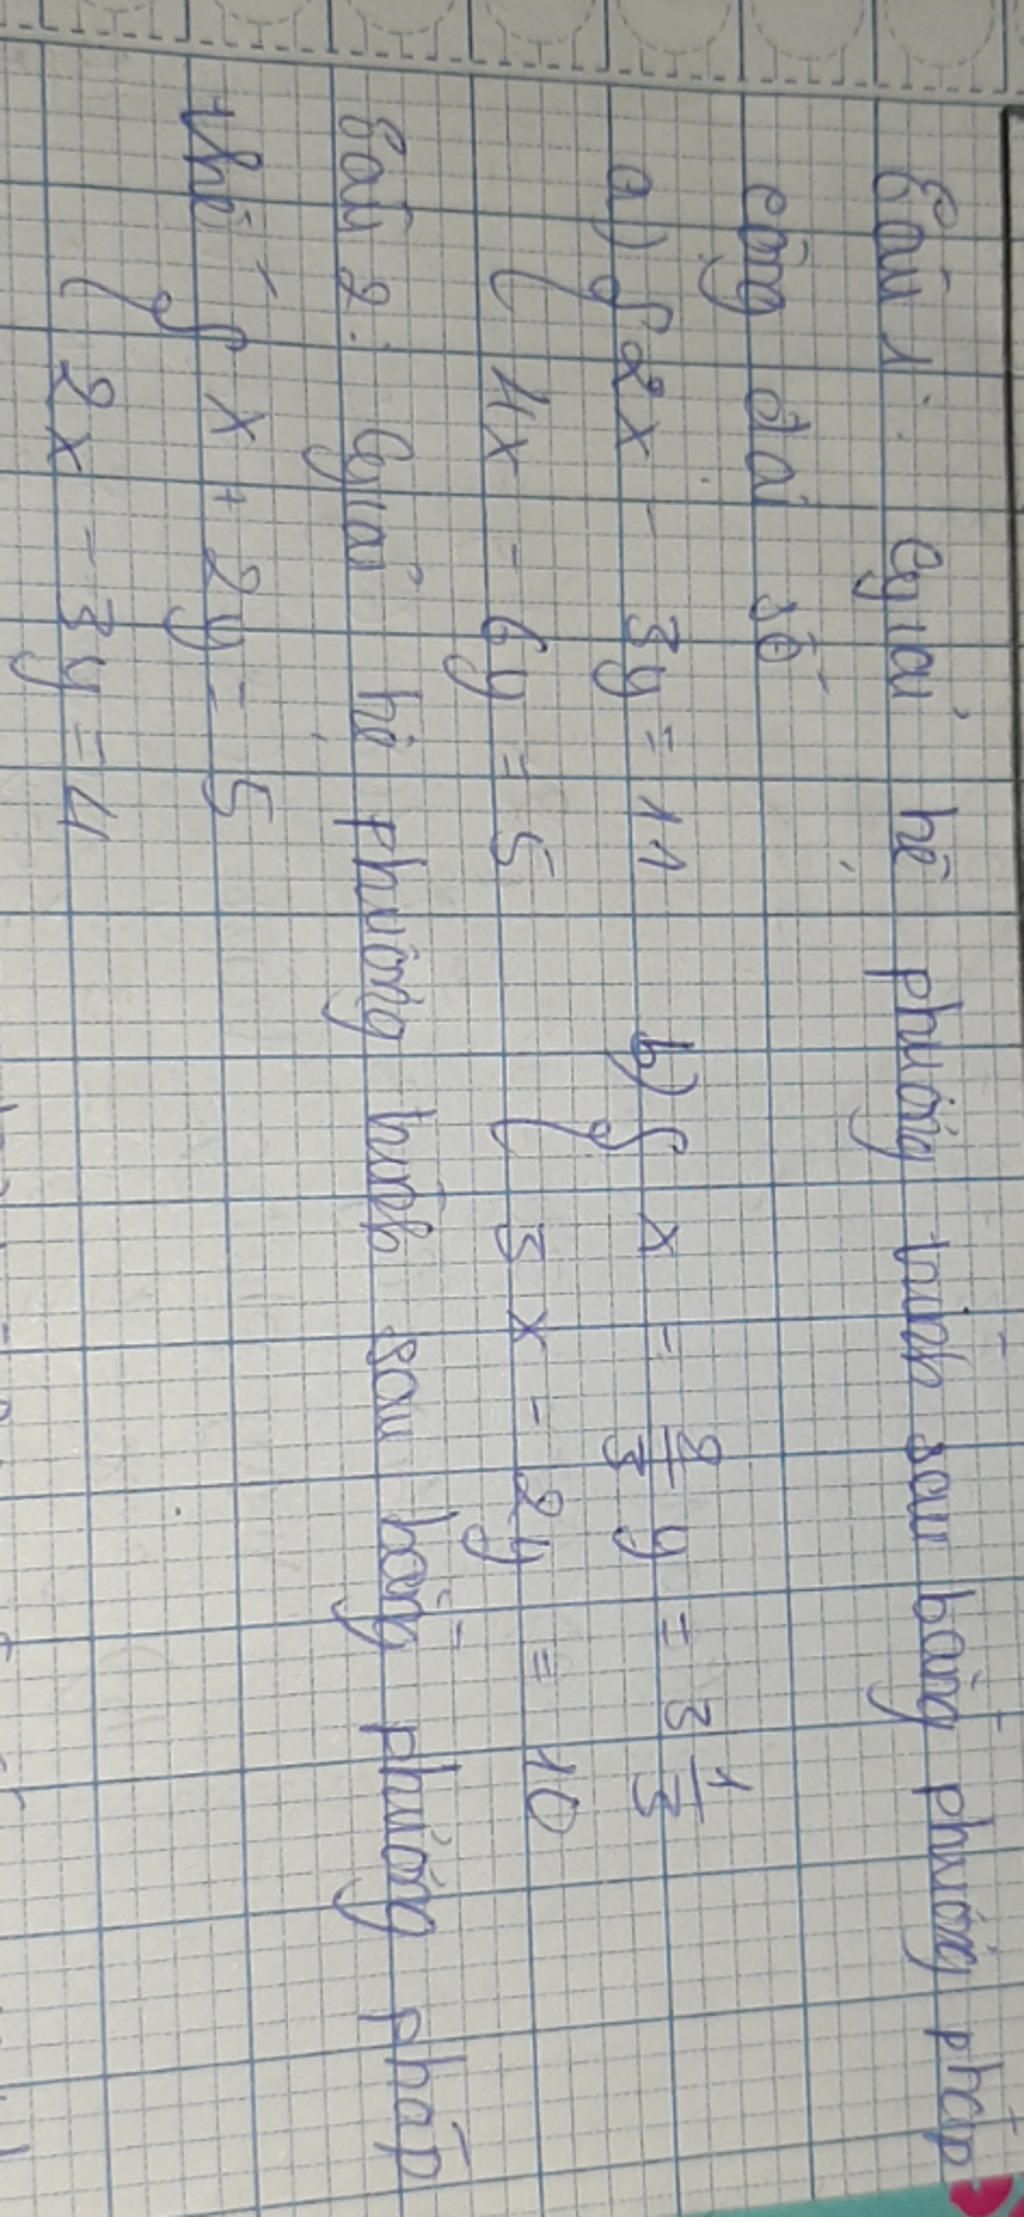 Bài 1: Giải hệ phương trình sau bằng phương pháp
cộng đại số
a) { 2x - 3y = 11 b) { x - 2/3 y = 3 1/3
4x - 6y = 5 3x - 2y = 10
Bài 2: Giải hệ phương trình sau bằng phương pháp
thế { x + 2y = 5
2x - 3y = 4